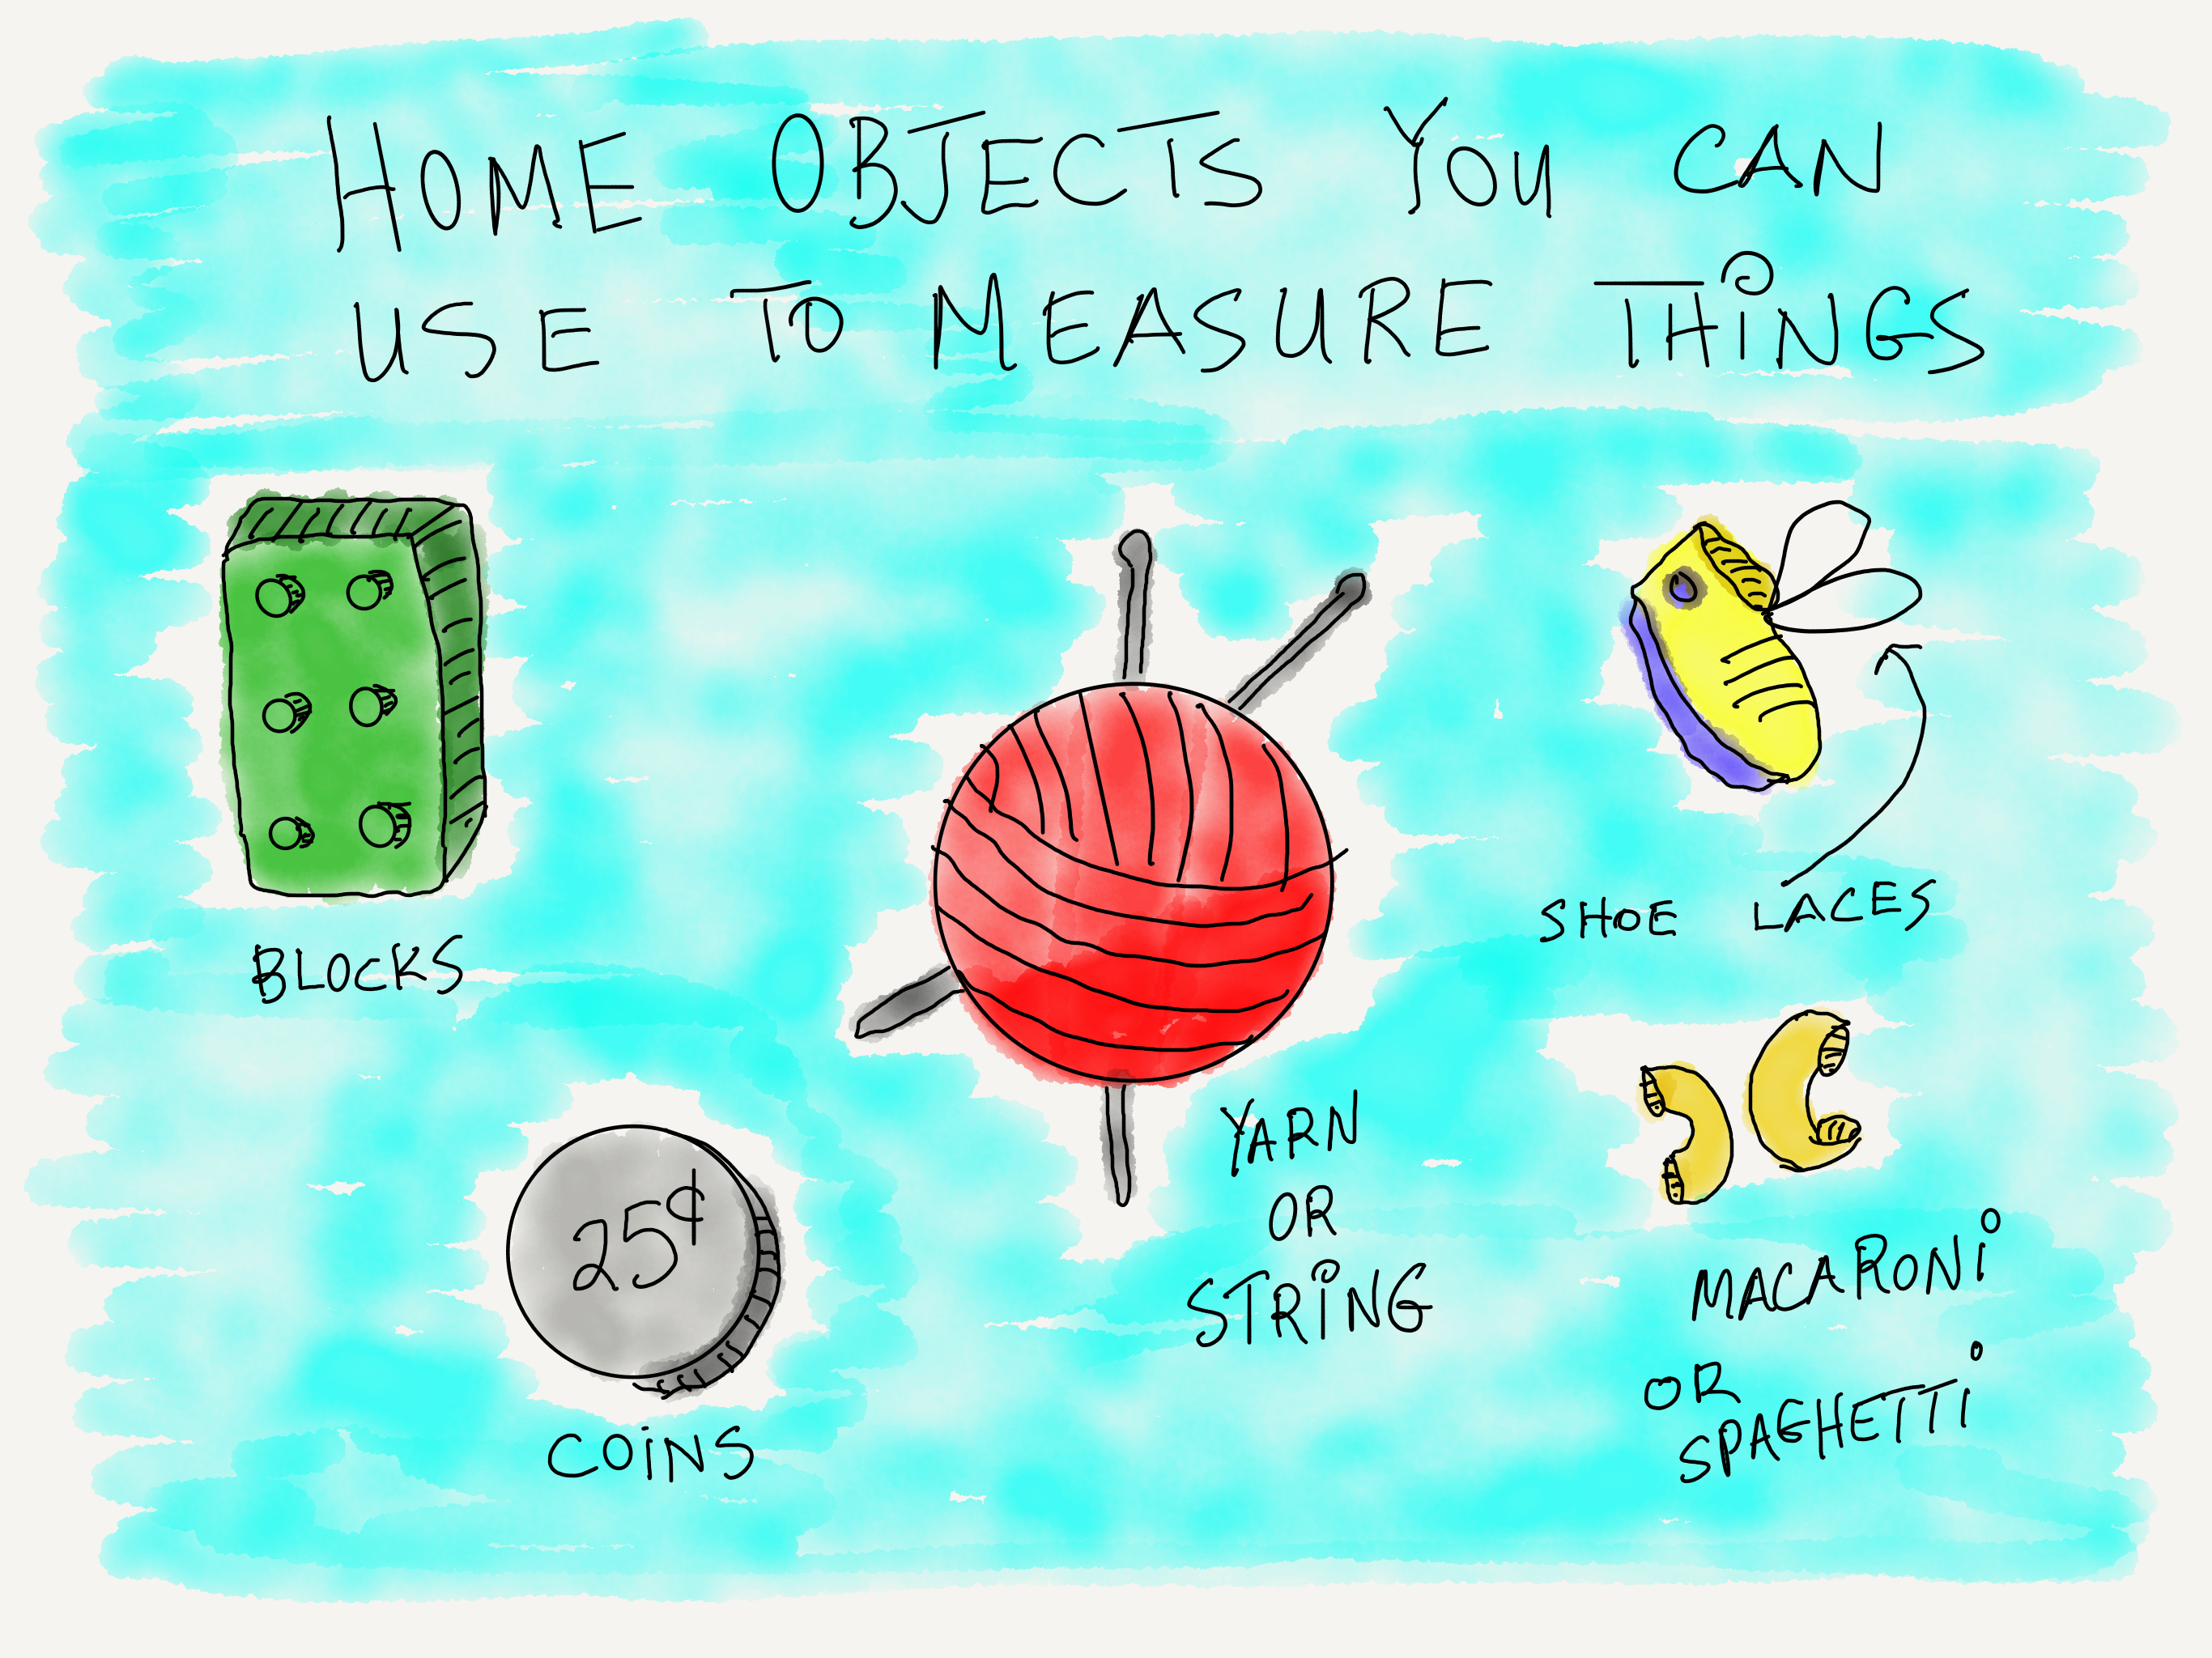 HOME OBJECTS YOU CAN
USE TO MEASURE THiNGS
BLOCKS
25¢
COiNS
YARN
OR
STRiNG
SHOE LACES
MACARONi
OR
SPAGHETTi